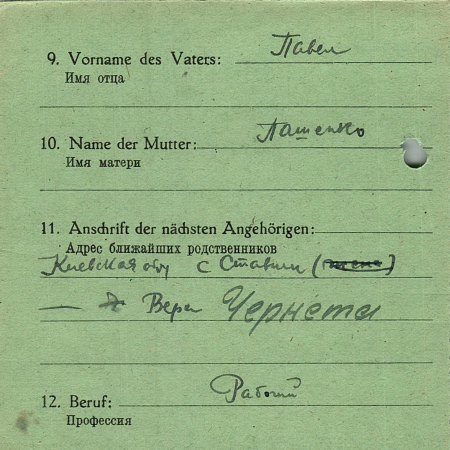 9. Vorname des Vaters: Павел
Имя отца
10. Name der Mutter: Пашенко
Имя матери
11. Anschrift der nächsten Angehörigen:
Адрес ближайших родственников
Киевская обл с Ставищи (жена)
— Вера Чернета
12. Beruf: Рабочий
Профессия